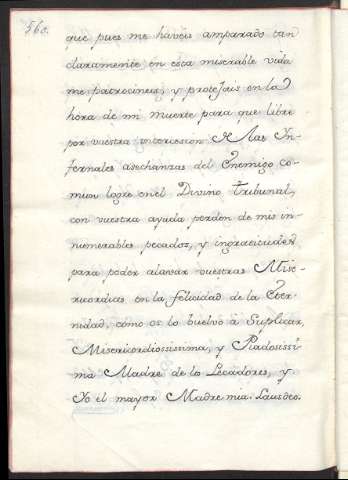 560.
que pues me haveis amparado tan
claramente en esta miserable vida
me patrocineis, y protejais en la
hora de mi muerte para que libre
por vuestra intercesion de las In-
fernales asechanzas del Enemigo co-
mun logre en el Divino Tribunal,
con vuestra ayuda perdon de mis in-
numerables pecados, y ingratitudes
para poder alavar vuestras Mise-
ricordias en la felicidad de la Eter-
nidad, como os lo buelvo à Suplicar,
Misericordiossissima, y Piadosissi
ma Madre de lo Pecadores, y
Yo el mayor Madre mia. Lausdeo.